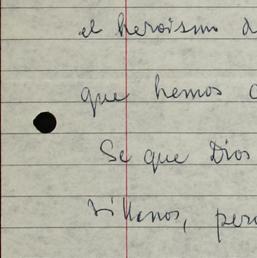 el heroísmo d
que hemos
Se que Dios
villanos, pero